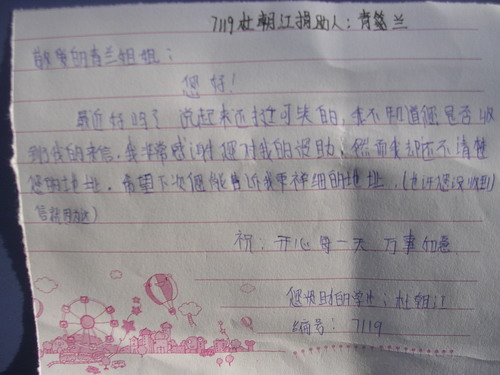 7119杜朝江捐助人:青笛兰
敬爱的青兰姐姐:
您好!
最近好吗?说起来还挺可笑的,我不知道您是否收
到我的来信,我非常感谢您对我的资助,然而我却还不清楚
您的地址,希望下次您能告诉我更详细的地址,(也许您没收到
祝:开心每一天 万事如意
您资助的学生:杜朝江
编号:7119